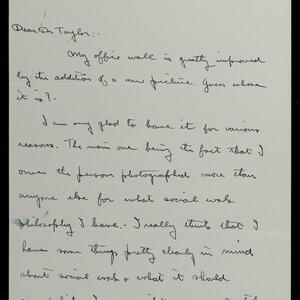 Dear Dr Taylor:-
My office wall is greatly improved
by the addition of a new picture. Guess whose
it is?-
I am very glad to have it for various
reasons. The main one being the fact that I
owe the person photographed more than
anyone else for what social work
philosophy I have.- I really think that I
have some things pretty clearly in mind
about social work & what it should